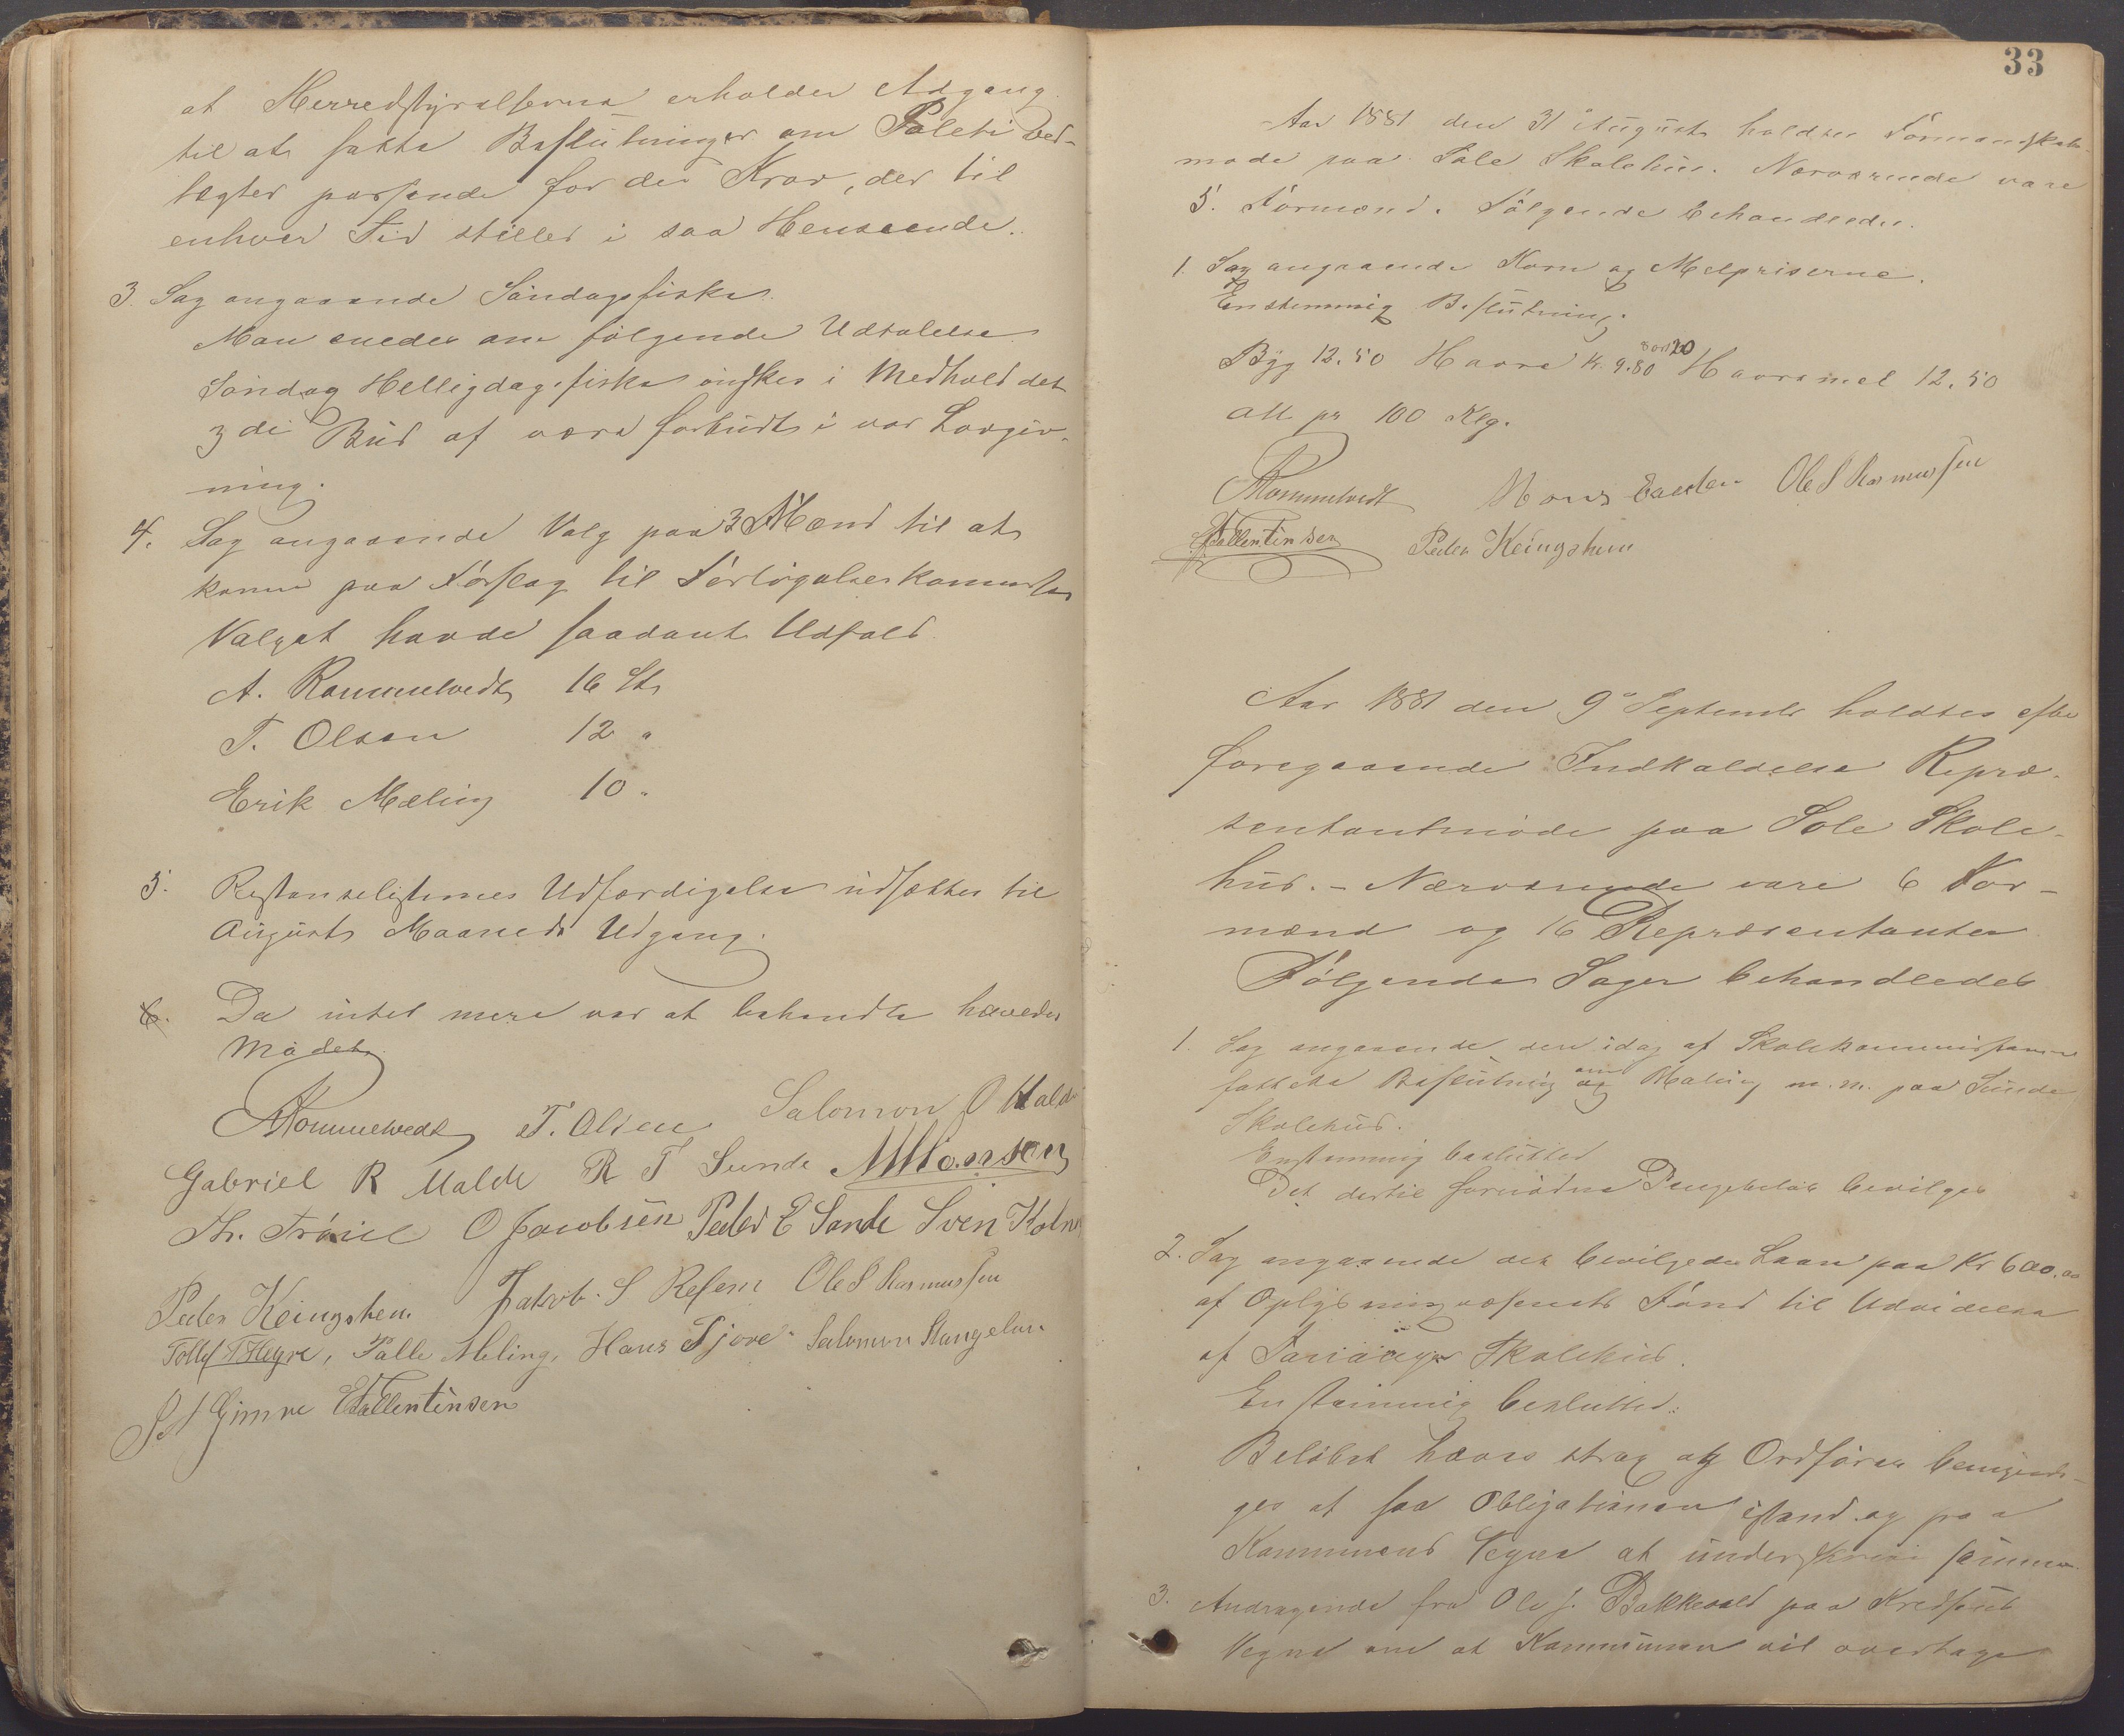 at Herredstyrelserne erholder Adgang
til at fatte Beslutninger om Politi Ved-
tægter passende for de Krav, der til
enhver Tid stilles i saa Henseende.
3. Sag angaaende Søndagsfiske.
Man enedes om følgende Udtalelse
Søndag Helligdagsfiske ønskes i Medhold det
3die Bud af være forbudt i vor Lovgiv-
ning.
4. Sag angaaende Valg paa 3 Mænd til at
komme paa Forslag til Forligelseskommissær
Valget havde saadant Udfald
A. Rommetvedt 16 St
T. Olsen 12 "
Erik Mæling 10 "
5. Restanselisternes Udfærdigelse udsættes til
August Maaneds Udgang.
6. Da intet mere var at behandle hævedes
Mødet.
A Rommetvedt T. Olsen Salomon O Malde
Gabriel R Malde R T Sunde
Th. O Jacobsen Peder E Sande Sven Kolnes
Peder Keingshem Jakob S Ræsem Ole S Rasmussen
Tollef T Hegre, Palle Meling, Hans Tjore Salomon Stangelan
Gimre E Tallentinsen
33
Aar 1881 den 31 August holdtes Formandskabs-
møde paa Sole Skolehus. Nærværende vare
5 Formænd. Følgende behandledes.
1. Sag angaaende Korn og Melpriserne.
Enstemmig Beslutning.
Byg 12.50 Havre Kr. 9.80 Havremel 12.50
20
alt pr 100 Klg.
A Rommetvedt Hans Ole S Rasmussen
E Tallentinsen Peder Keingshem
Aar 1881 den 9de September holdtes efter
foregaaende Indkaldelse Repræ-
sentantmøde paa Sole Skole-
hus. – Nærværende vare 6 For-
mænd og 16 Repræsentanter
Følgende Sager behandledes
1. Sag angaaende den idag af Skolekommissionen
fattede Beslutning om Maling m.m. paa Sunde
Skolehus.
Enstemmig besluttet
Det dertil fornødne Pengebeløb bevilges
2. Sag angaaende det bevilgede Laan paa Kr 600.00
af Oplysningvæsenets Fond til Udvidelse
af Skolehus.
Enstemmig besluttet:
Beløbet hæves strax og Ordføreren bemyndi-
ges at faa Obligationen istand og paa
Kommunens Vegne at underskrive samme.
3. Andragende fra Ole J. Bakkevold paa Kredsens
Vegne om at Kommunen vil overtage